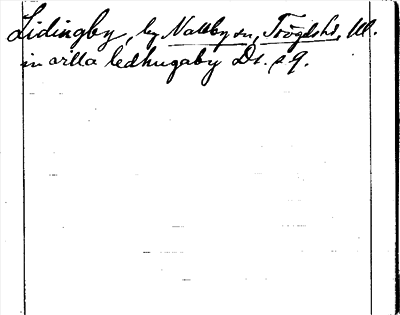 Lidingby, by Nallby sn, Trögds hd, Ul.
in villa ledhugaby Ds. s 9.